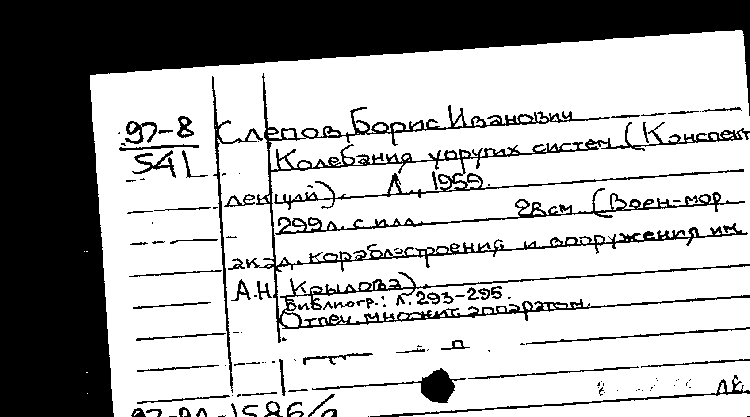 97-8
541
Слепов, Борис Иванович
Колебания упругих систем (Конспект
лекций). Л., 1959.
299л. с илл. 28см (Воен-мор.
акад. кораблестроения и вооружения им.
А.Н. Крылова).
Библиогр.: л. 293-295.
Отпеч. множит. аппаратом.